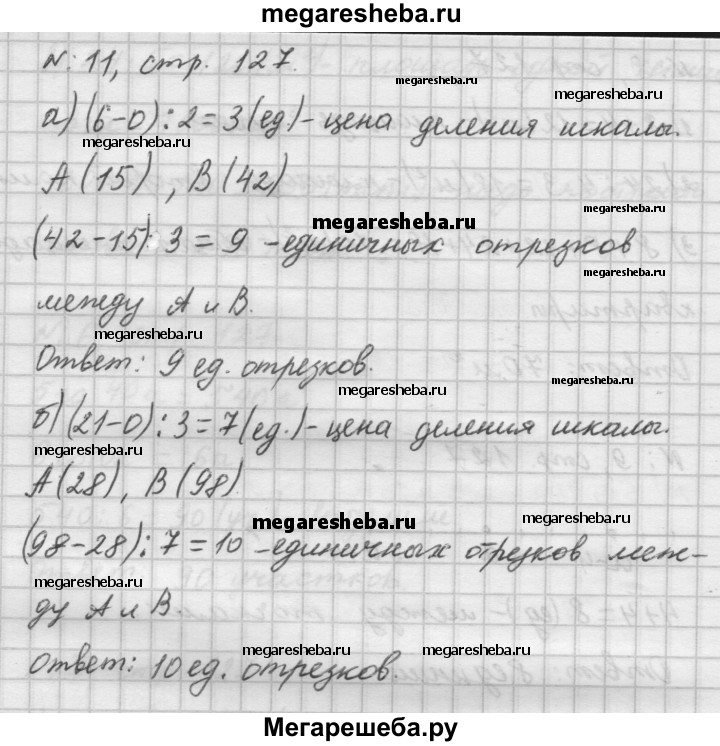 megaresheba.ru
№ 11, стр. 127.
megaresheba.ru
megaresheba.ru
а) (6-0) : 2 = 3 (ед.) - цена деления шкалы.
megaresheba.ru
megaresheba.ru
А (15), В (42)
megaresheba.ru
megaresheba.ru
(42-15) : 3 = 9 - единичных отрезков
megaresheba.ru
между А и В.
megaresheba.ru
Ответ: 9 ед. отрезков.
megaresheba.ru
megaresheba.ru
б) (21-0) : 3 = 7 (ед.) - цена деления шкалы.
megaresheba.ru
megaresheba.ru
А (28), В (98)
megaresheba.ru
megaresheba.ru
(98-28) : 7 = 10 - единичных отрезков меж-
megaresheba.ru
megaresheba.ru
ду А и В.
megaresheba.ru
megaresheba.ru
Ответ: 10 ед. отрезков.
megaresheba.ru
Мегарешеба.ру